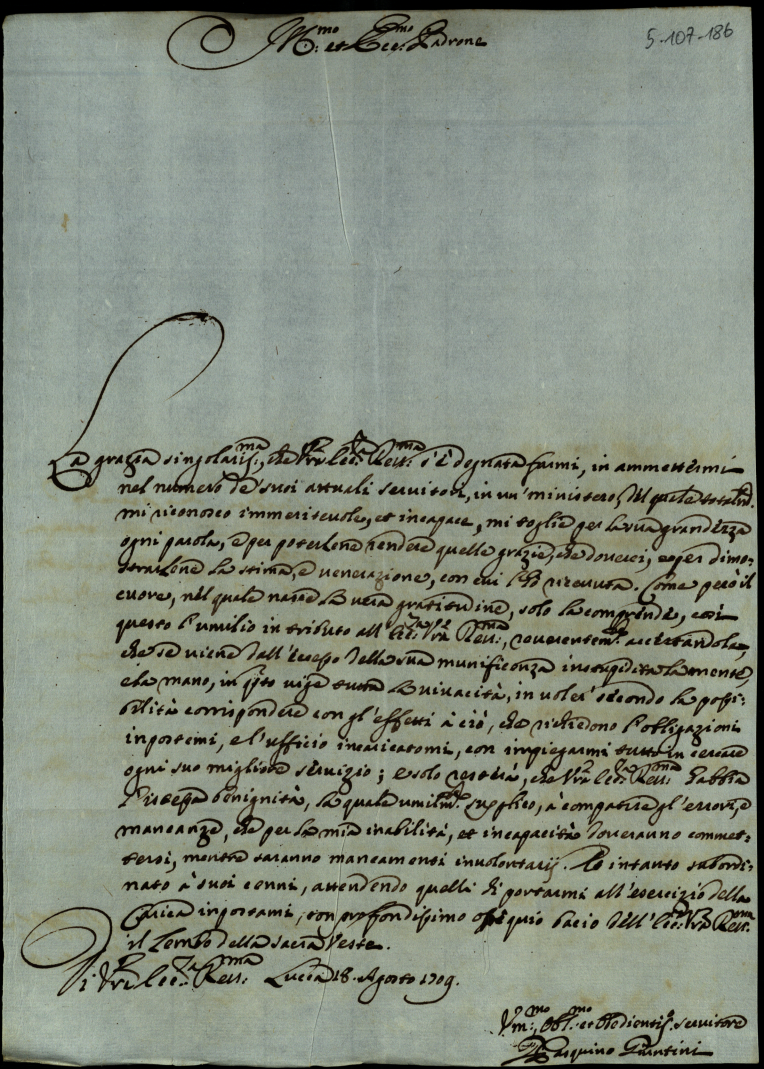 5-107-186
et Ecc.mo Padrone
La grazia singolariss.ma, che Vra Ecc.za Rev.ma s'è degnata farmi, in ammettermi
nel numero de' suoi attuali servitori, in un' ministero, del quale
mi riconosco immeritevole, et incapace, mi toglie per la sua grandezza
ogni parola, e per potergliene rendere quelle grazie, che doverei, e per dimo=
strargliene la stima, e venerazione, con cui l'hò ricevuta. Come però il
cuore, nel quale nasce la vera gratitudine, solo la comprende, così
questo l'umilio in tributo all'Ecc.za Vra Rev.ma, reverentem.te accertandola,
che se viene dall'eccesso della sua munificenza instupidita la mente,
e la mano, in q.sto vige tutta la vivacità, in voler' secondo la possi=
bilità corrispondere con gl'effetti à ciò, che richiedono l'obligazioni
inpostemi, e l'ufficio incaricatomi, con impiegarmi tutto in cercare
ogni suo migliore servizio; e solo resterà, che Vra Ecc.za Rev.ma habbia
benignità, la quale umilm.te supplico, à compatire gl'errori, e
mancanze, che per la mia inabilità, et incapacità doveranno commet=
tersi, mentre saranno mancamenti involontarij. Io intanto subordi=
nato à suoi cenni, attendendo quelli di portarmi all'esercizio della
Carica inpostami, con profondissimo ossequio bacio dell'Ecc.za Vra Rev.ma
il Lembo della Sacra Veste.
Di Vra Ecc.za Rev.ma Lucca 18. Agosto 1709.
Um.mo, Obl.mo et Obedientiss.o servitore
Pasquino Giuntini